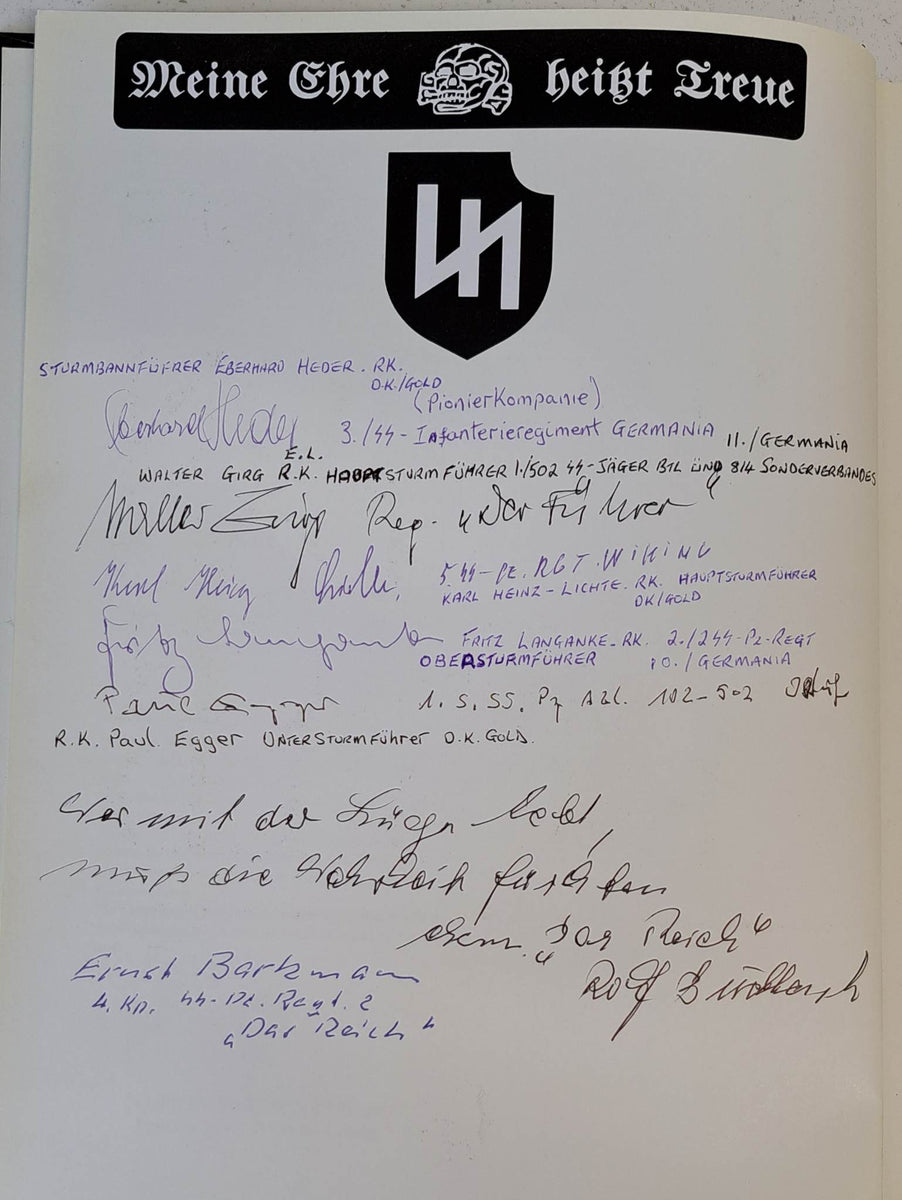 Meine Ehre heißt Treue
STURMBANNFÜFRER EBERHARD HEDER. RK.
D.K./GOLD
(PionierKompanie)
Eberhard Heder 3./SS-Infanterieregiment GERMANIA 11./GERMANIA
E.L.
WALTER GIRG R.K. HAUPTSTURMFÜHRER 1./502 SS-JÄGER BTL UND 8/4 SONDERVERBANDES
Girg Reg. „Der Führer“
Karl Heinz 5. SS-PZ. RGT. WIKING
KARL HEINZ-LICHTE. RK. HAUPTSTURMFÜHRER
DK/GOLD
Fritz Langanke FRITZ LANGANKE. RK. 2./2SS-Pz-REGT
OBERSTURMFÜHRER 10./GERMANIA
Paul Egger 1. S. SS. Pz Abl. 102-502
R.K. Paul. Egger UNTERSTURMFÜHRER D.K. GOLD.
Wer mit der Lüge lebt,
muß die Wahrheit fürchten
ehem. „Das Reich“
Rolf
Ernst Barkmann
4. Kp. SS-Pz. Regt. 2
„Das Reich“